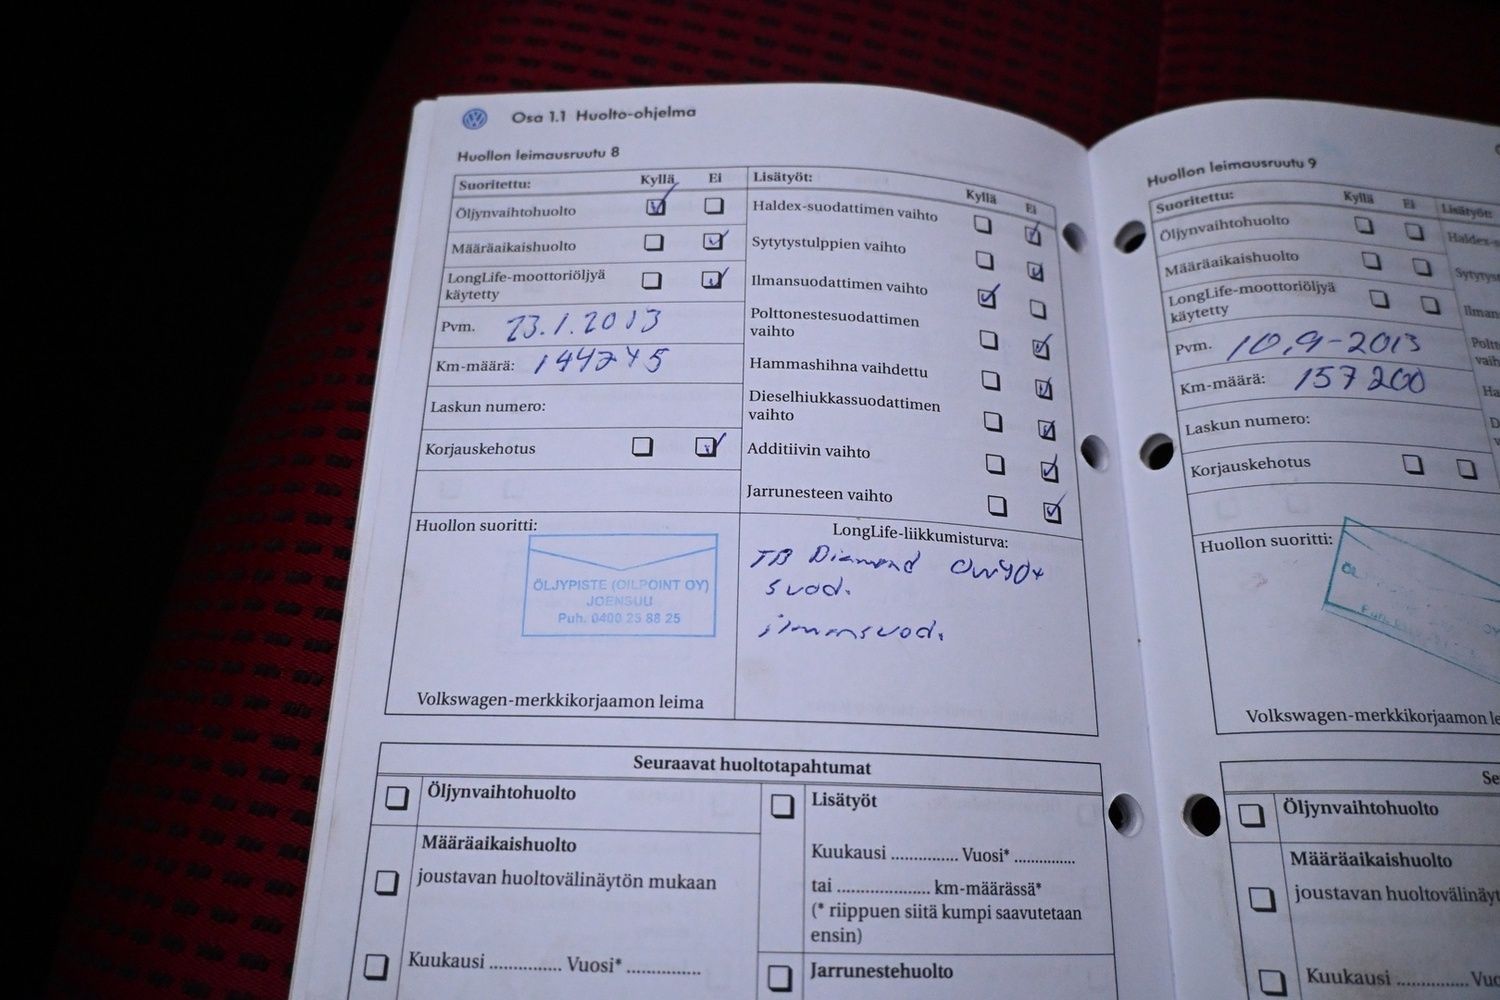 Osa 1.1 Huolto-ohjelma
Huollon leimausruutu 8
Suoritettu: Kyllä Ei
Öljynvaihtohuolto
Määräaikaishuolto
LongLife-moottoriöljyä
käytetty
Pvm. 23.1.2013
Km-määrä:
Laskun numero:
Korjauskehotus
Huollon suoritti:
ÖLJYPISTE (OILPOINT OY)
JOENSUU
Puh. 0400 25 88 25
Volkswagen-merkkikorjaamon leima
Lisätyöt:
Kyllä Ei
Haldex-suodattimen vaihto
Sytytystulppien vaihto
Ilmansuodattimen vaihto
Polttonestesuodattimen
vaihto
Hammashihna vaihdettu
Dieselhiukkassuodattimen
vaihto
Additiivin vaihto
Jarrunesteen vaihto
LongLife-liikkumisturva:
TB Diamond
suod.
ilmansuod.
Seuraavat huoltotapahtumat
Öljynvaihtohuolto
Määräaikaishuolto
joustavan huoltovälinäytön mukaan
Kuukausi .............. Vuosi* ...............
Lisätyöt
Kuukausi .............. Vuosi* .............
tai .................... km-määrässä*
(* riippuen siitä kumpi saavutetaan
ensin)
Jarrunestehuolto
Huollon leimausruutu 9
Suoritettu: Kyllä Ei
Öljynvaihtohuolto
Määräaikaishuolto
LongLife-moottoriöljyä
käytetty
Pvm. 10.9-2013
Km-määrä: 157200
Laskun numero:
Korjauskehotus
Huollon suoritti:
Volkswagen-merkkikorjaamon le
Lisätyöt:
Öljynvaihtohuolto
Määräaikaishuolto
joustavan huoltovälinäyt
Kuukausi .............. Vuo